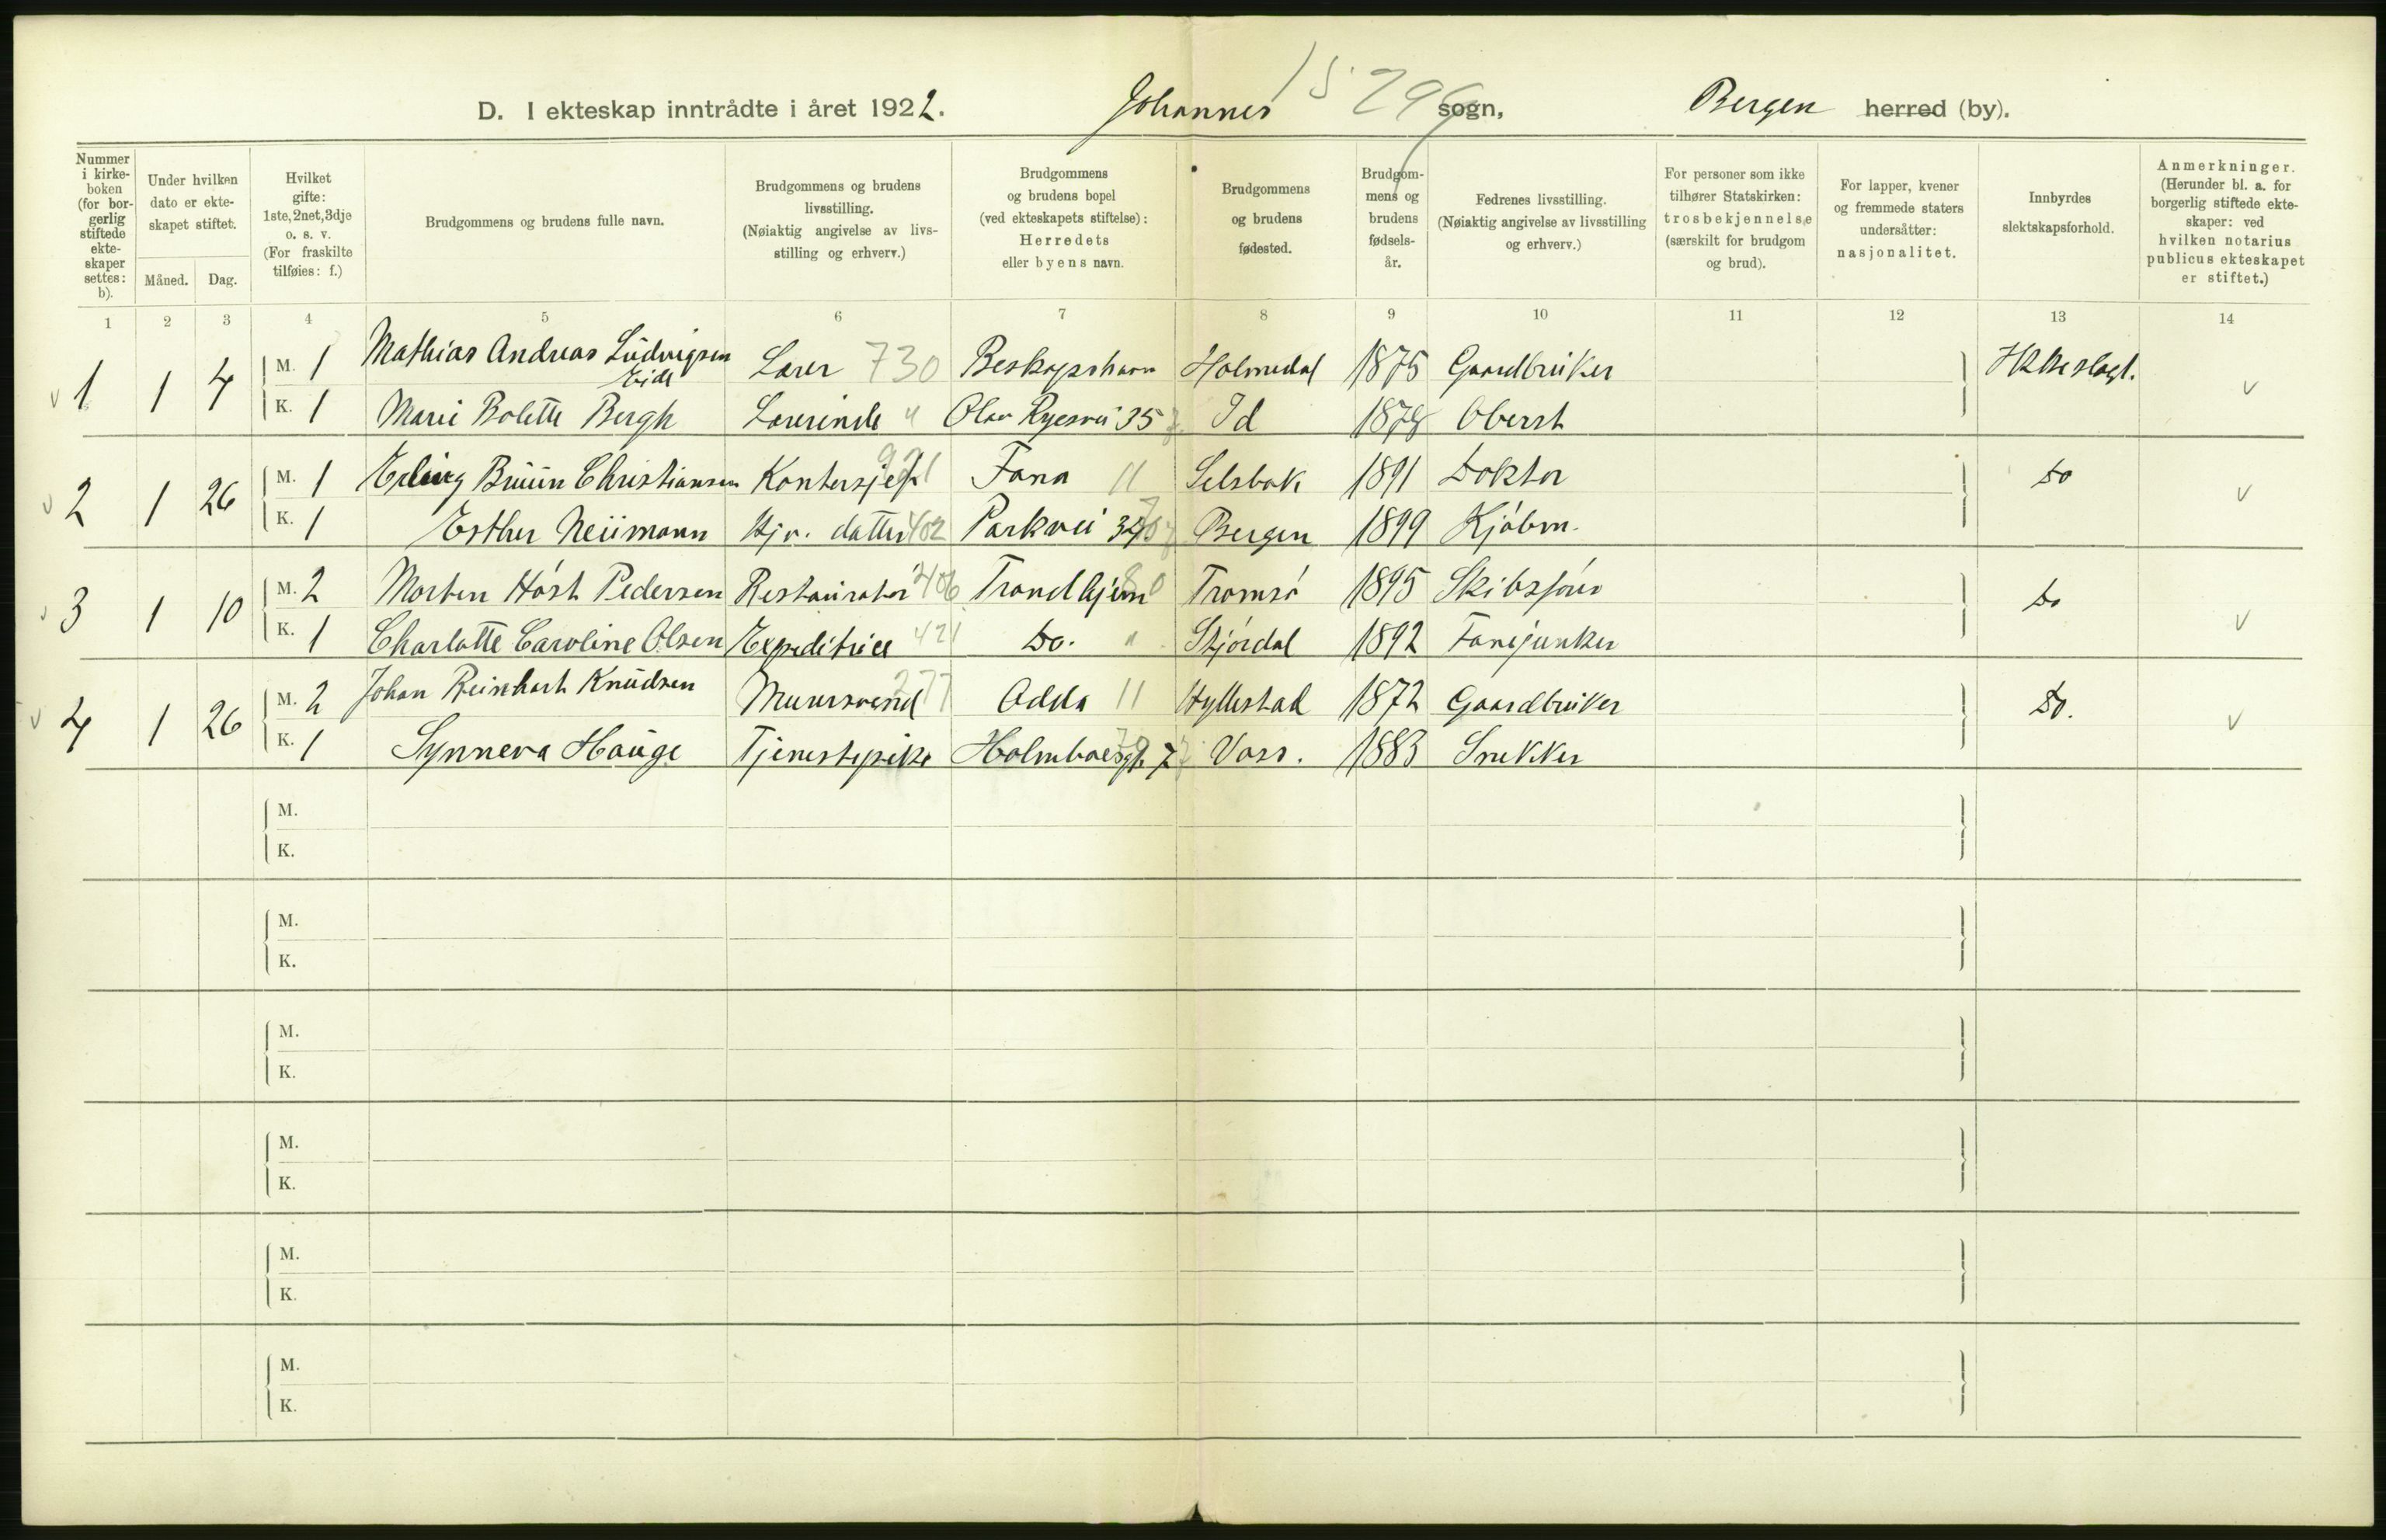 15 296
D. I ekteskap inntrådte i året 1922. Johannes sogn, Bergen herred (by).
Nummer i kirkeboken (for borgerlig stiftede ekteskaper settes: b).
Under hvilken dato er ekteskapet stiftet.
Måned. Dag.
Hvilket gifte: 1ste, 2net, 3dje o. s. v. (For fraskilte tilføies: f.)
Brudgommens og brudens fulle navn.
Brudgommens og brudens livsstilling. (Nøiaktig angivelse av livsstilling og erhverv.)
Brudgommens og brudens bopel (ved ekteskapets stiftelse): Herredets eller byens navn.
Brudgommens og brudens fødested.
Brudgommens og brudens fødsels-år.
Fedrenes livsstilling. (Nøiaktig angivelse av livsstilling og erhverv.)
For personer som ikke tilhører Statskirken: trosbekjennelse (særskilt for brudgom og brud).
For lapper, kvener og fremmede staters undersåtter: nasjonalitet.
Innbyrdes slektskapsforhold.
Anmerkninger. (Herunder bl. a. for borgerlig stiftede ekteskaper: ved hvilken notarius publicus ekteskapet er stiftet.)
1 2 3 4 5 6 7 8 9 10 11 12 13 14
1 1 4 M. 1 Mathias Andreas Ludvigsen Eide Lærer 730 Holmedal 1875 Gaardbruker
K. 1 Marie Bolette Bergh Lærerinde " Olav Ryesvei 35 Id Oberst
2 1 26 M. 1 Erling Bruun Christiansen Kontorsjef Fana 11 Selsbak 1891 Doktor Do
K. 1 Esther Neumann Hjv. datter 402 Parkvei Bergen 1899 Kjøbm.
3 1 10 M. 2 Morten Høst Pedersen Restauratør 406 Trondhjem Tromsø 1895 Skibsfører Do
K. 1 Charlotte Caroline Olsen Expeditrice 421 Do. " Stjørdal 1892 Fanejunker
4 1 26 M. 2 Johan Reinhart Knudsen Murersvend 277 Odda 11 Hyllestad 1872 Gaardbruker Do.
K. 1 Synneva Hauge Tjenestepike Holmboesgt. 7 Voss. 1883 Snekker
M.
K.
M.
K.
M.
K.
M.
K.
M.
K.
M.
K.